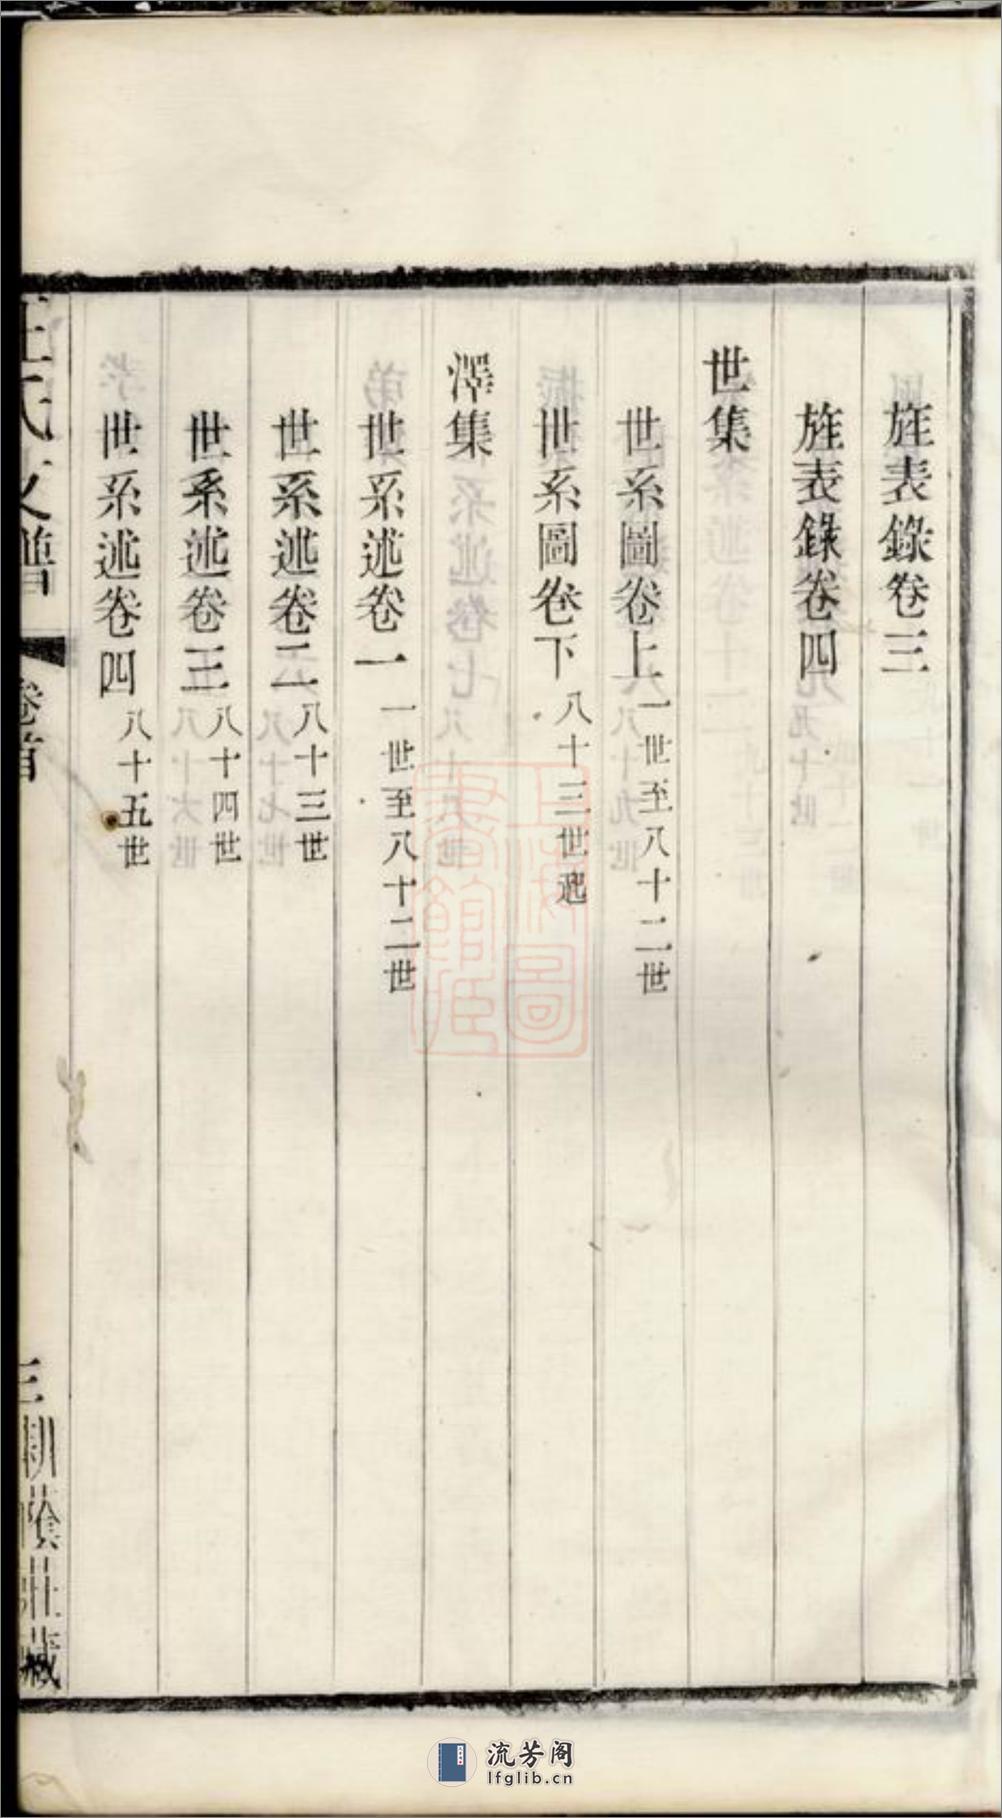 旌表錄卷三
旌表錄卷四
世集
世系圖卷上 一世至八十二世
世系圖卷下 八十三世起
澤集
世系述卷一 一世至八十二世
世系述卷二 八十三世
世系述卷三 八十四世
世系述卷四 八十五世
氏支譜 卷首 三 蔭莊藏
上海圖書館藏
流芳阁
lfglib.cn